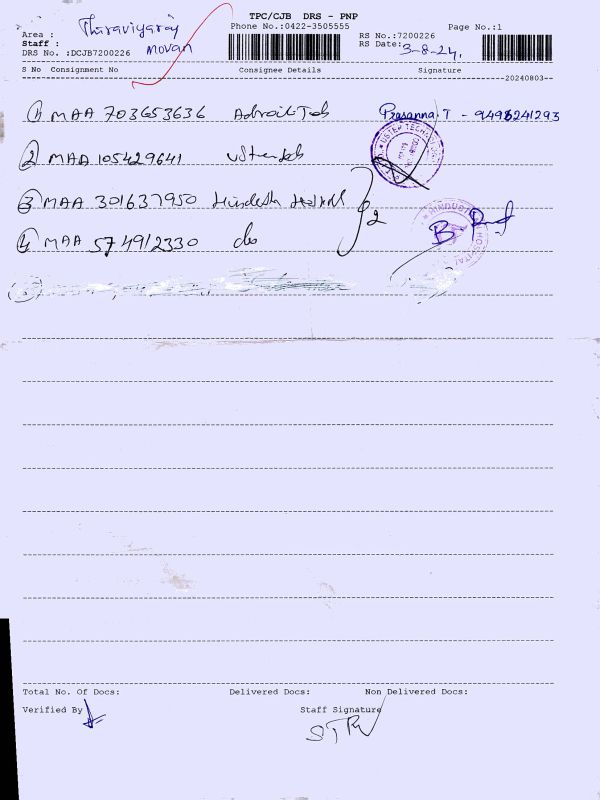 TPC/CJB DRS - PNP
Phone No.:0422-3505555 Page No.:1
Area : Thiraviyaraj
Staff : Movan
RS No.:7200226
DRS No. :DCJB7200226 RS Date: 3-8-24,
S No Consignment No Consignee Details Signature
20240803
1 MAA 703653636 Prasanna.T - 9498241293
2 MAA 105429641
3 MAA 301637950
4 MAA 574912330 do
2
Total No. Of Docs: Delivered Docs: Non Delivered Docs:
Verified By Staff Signature